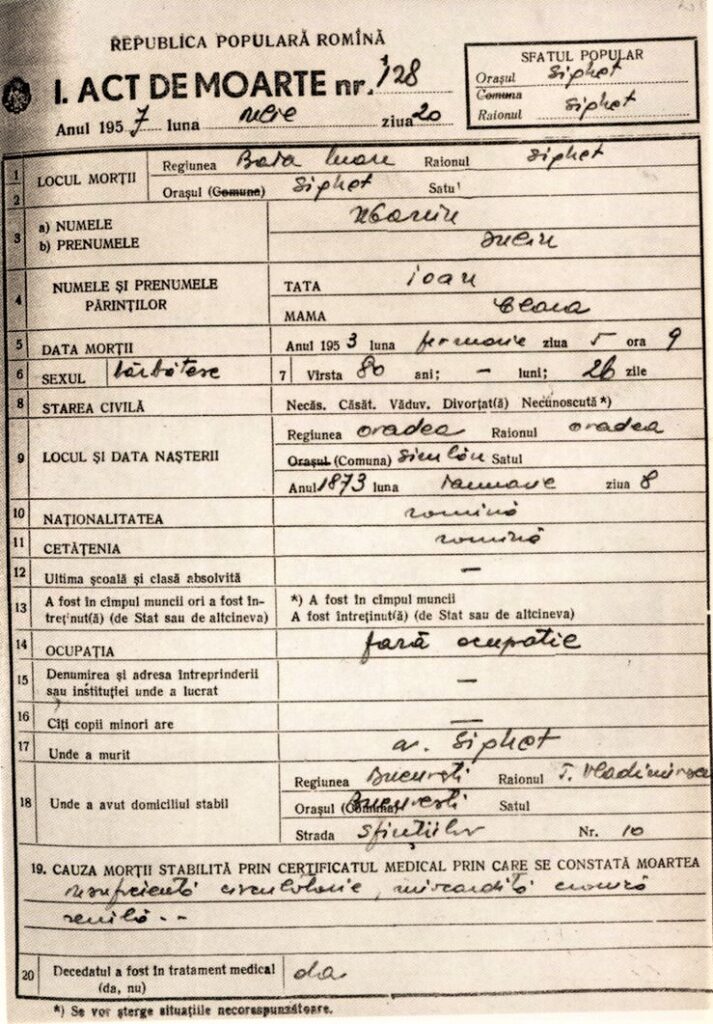 REPUBLICA POPULARĂ ROMÎNĂ
I. ACT DE MOARTE nr. 128
Anul 1957 luna iulie ziua 20
SFATUL POPULAR
Orașul Sighet
Comuna
Raionul Sighet
1 LOCUL MORȚII Regiunea Baia Mare Raionul Sighet
2 Orașul (Comuna) Sighet Satul
3 a) NUMELE Maniu
b) PRENUMELE Iuliu
4 NUMELE ȘI PRENUMELE PĂRINȚILOR TATA Ioan
MAMA Clara
5 DATA MORȚII Anul 1953 luna februarie ziua 5 ora 9
6 SEXUL bărbătesc 7 Vîrsta 80 ani; — luni; 26 zile
8 STAREA CIVILĂ Necăs. Căsăt. Văduv. Divorțat(ă) Necunoscută*)
9 LOCUL ȘI DATA NAȘTERII Regiunea Oradea Raionul Oradea
Orașul (Comuna) Satul
Anul 1873 luna Ianuarie ziua 8
10 NAȚIONALITATEA romînă
11 CETĂȚENIA romînă
12 Ultima școală și clasă absolvită —
13 A fost în cîmpul muncii ori a fost în- *) A fost în cîmpul muncii
treținut(ă) (de Stat sau de altcineva) A fost întreținut(ă) (de Stat sau de altcineva)
14 OCUPAȚIA fără ocupație
15 Denumirea și adresa întreprinderii
sau instituției unde a lucrat —
16 Cîți copii minori are —
17 Unde a murit Sighet
18 Unde a avut domiciliul stabil Regiunea București Raionul T. Vladimirescu
Orașul (Comuna) București Satul
Strada Sfinților Nr. 10
19. CAUZA MORȚII STABILITĂ PRIN CERTIFICATUL MEDICAL PRIN CARE SE CONSTATĂ MOARTEA
insuficiență circulatorie, miocardită cronică
senilă. --
20 Decedatul a fost în tratament medical
(da, nu) da
*) Se vor șterge situațiile necorespunzătoare.